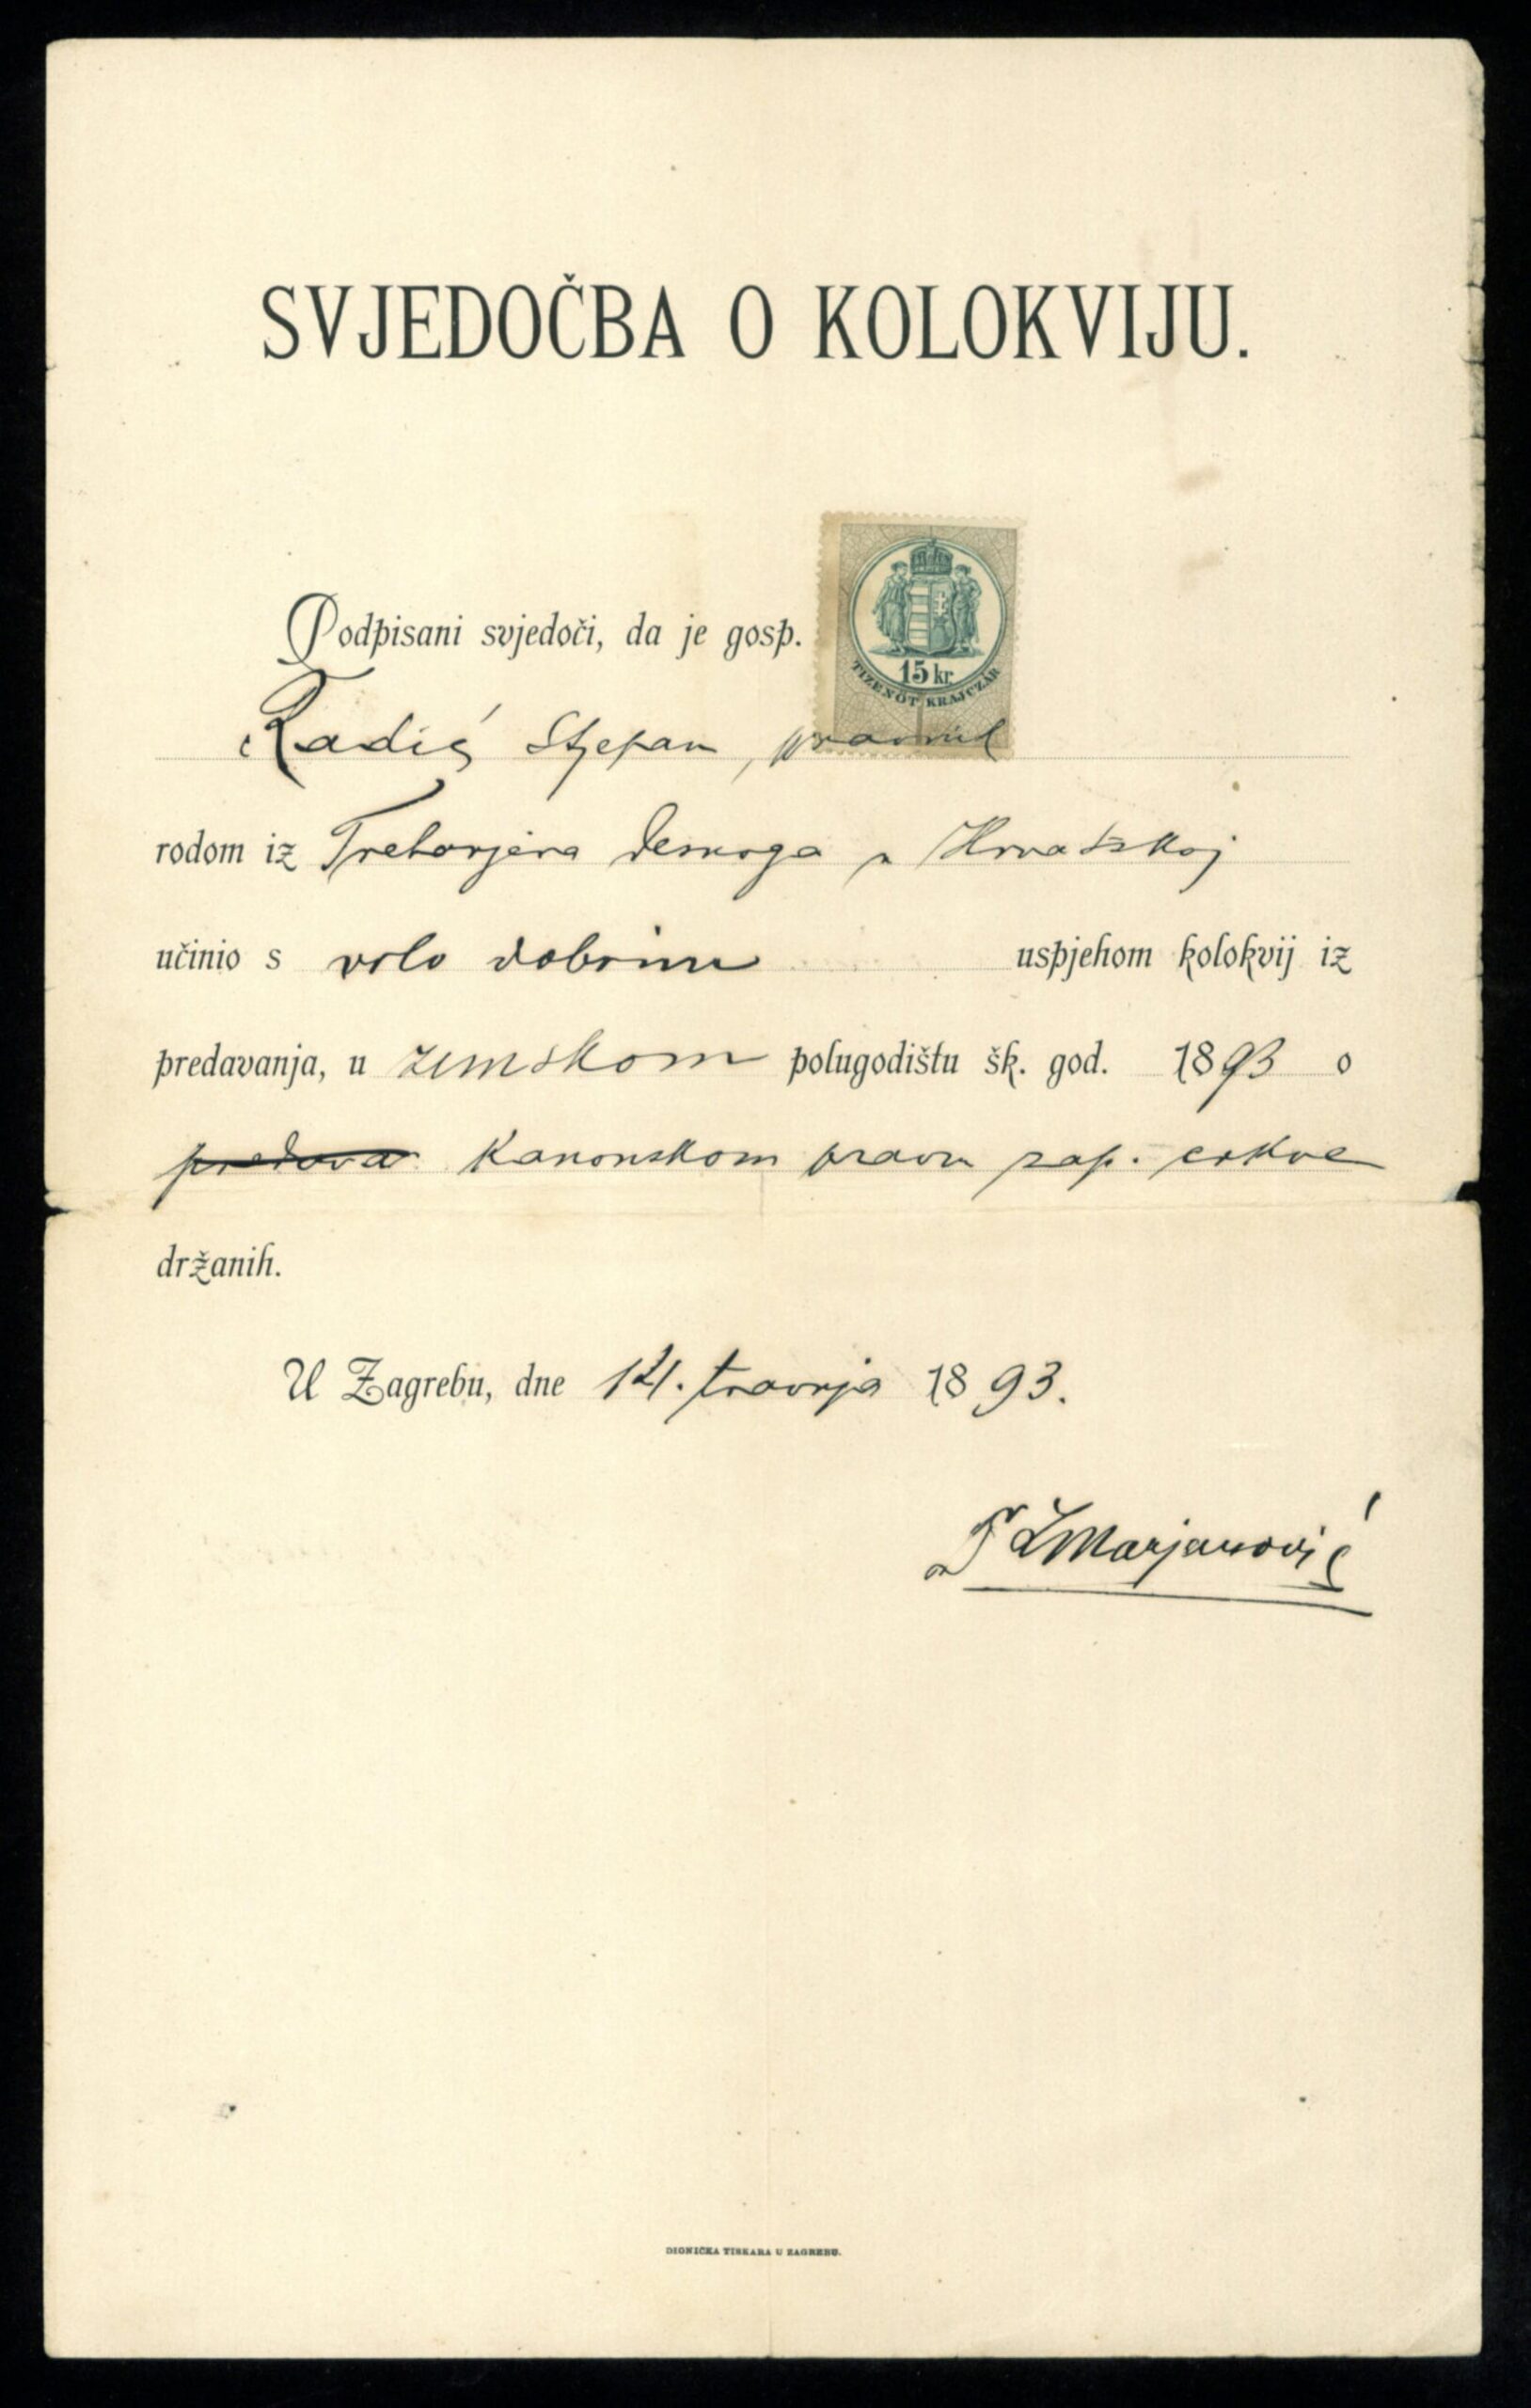 SVJEDOČBA O KOLOKVIJU.
Podpisani svjedoči, da je gosp.
15 kr
TIZENÖT KRAJCZÁR
Radić Stjepan, pravnik
rodom iz Trebarjeva desnoga u Hrvatskoj
učinio s vrlo dobrim uspjehom kolokvij iz
predavanja, u zimskom polugodištu šk. god. 1893 o
predava kanonskom pravu zap. crkve
držanih.
U Zagrebu, dne 14. travnja 1893.
Dr LMarjanović
DIONIČKA TISKARA U ZAGREBU.